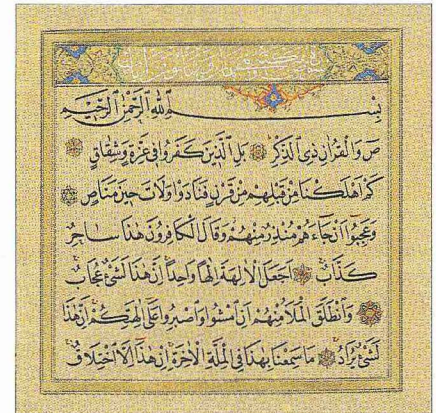 بِسْمِ اللّٰهِ الرَّحْمٰنِ الرَّحِيمِ
صٓ وَالْقُرْاٰنِ ذِى الذِّكْرِ بَلِ الَّذِينَ كَفَرُوا فِى عِزَّةٍ وَشِقَاقٍ
كَمْ اَهْلَكْنَا مِنْ قَبْلِهِمْ مِنْ قَرْنٍ فَنَادَوْا وَلَاتَ حِينَ مَنَاصٍ
وَعَجِبُوا اَنْ جَاءَهُمْ مُنْذِرٌ مِنْهُمْ وَقَالَ الْكَافِرُونَ هٰذَا سَاحِرٌ
كَذَّابٌ اَجَعَلَ الْاٰلِهَةَ اِلٰهًا وَاحِدًا اِنَّ هٰذَا لَشَىْءٌ عُجَابٌ
وَانْطَلَقَ الْمَلَاُ مِنْهُمْ اَنِ امْشُوا وَاصْبِرُوا عَلٰى اٰلِهَتِكُمْ اِنَّ هٰذَا
لَشَىْءٌ يُرَادُ مَا سَمِعْنَا بِهٰذَا فِى الْمِلَّةِ الْاٰخِرَةِ اِنْ هٰذَا اِلَّا اخْتِلَاقٌ